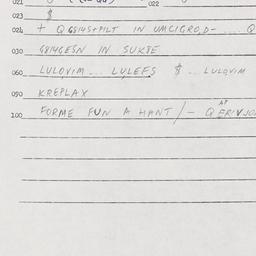 021 022
023 $
024 + Q G8I4S+PILT IN UMCIGRO,D- ... Q
030 G8I4GESN IN SUK8E
060 LULOVIM ... LULEFS $ ... LULQVIM
090 KREPLAX
AP
100 FORME FUN A HANT / - Q ERIVJO